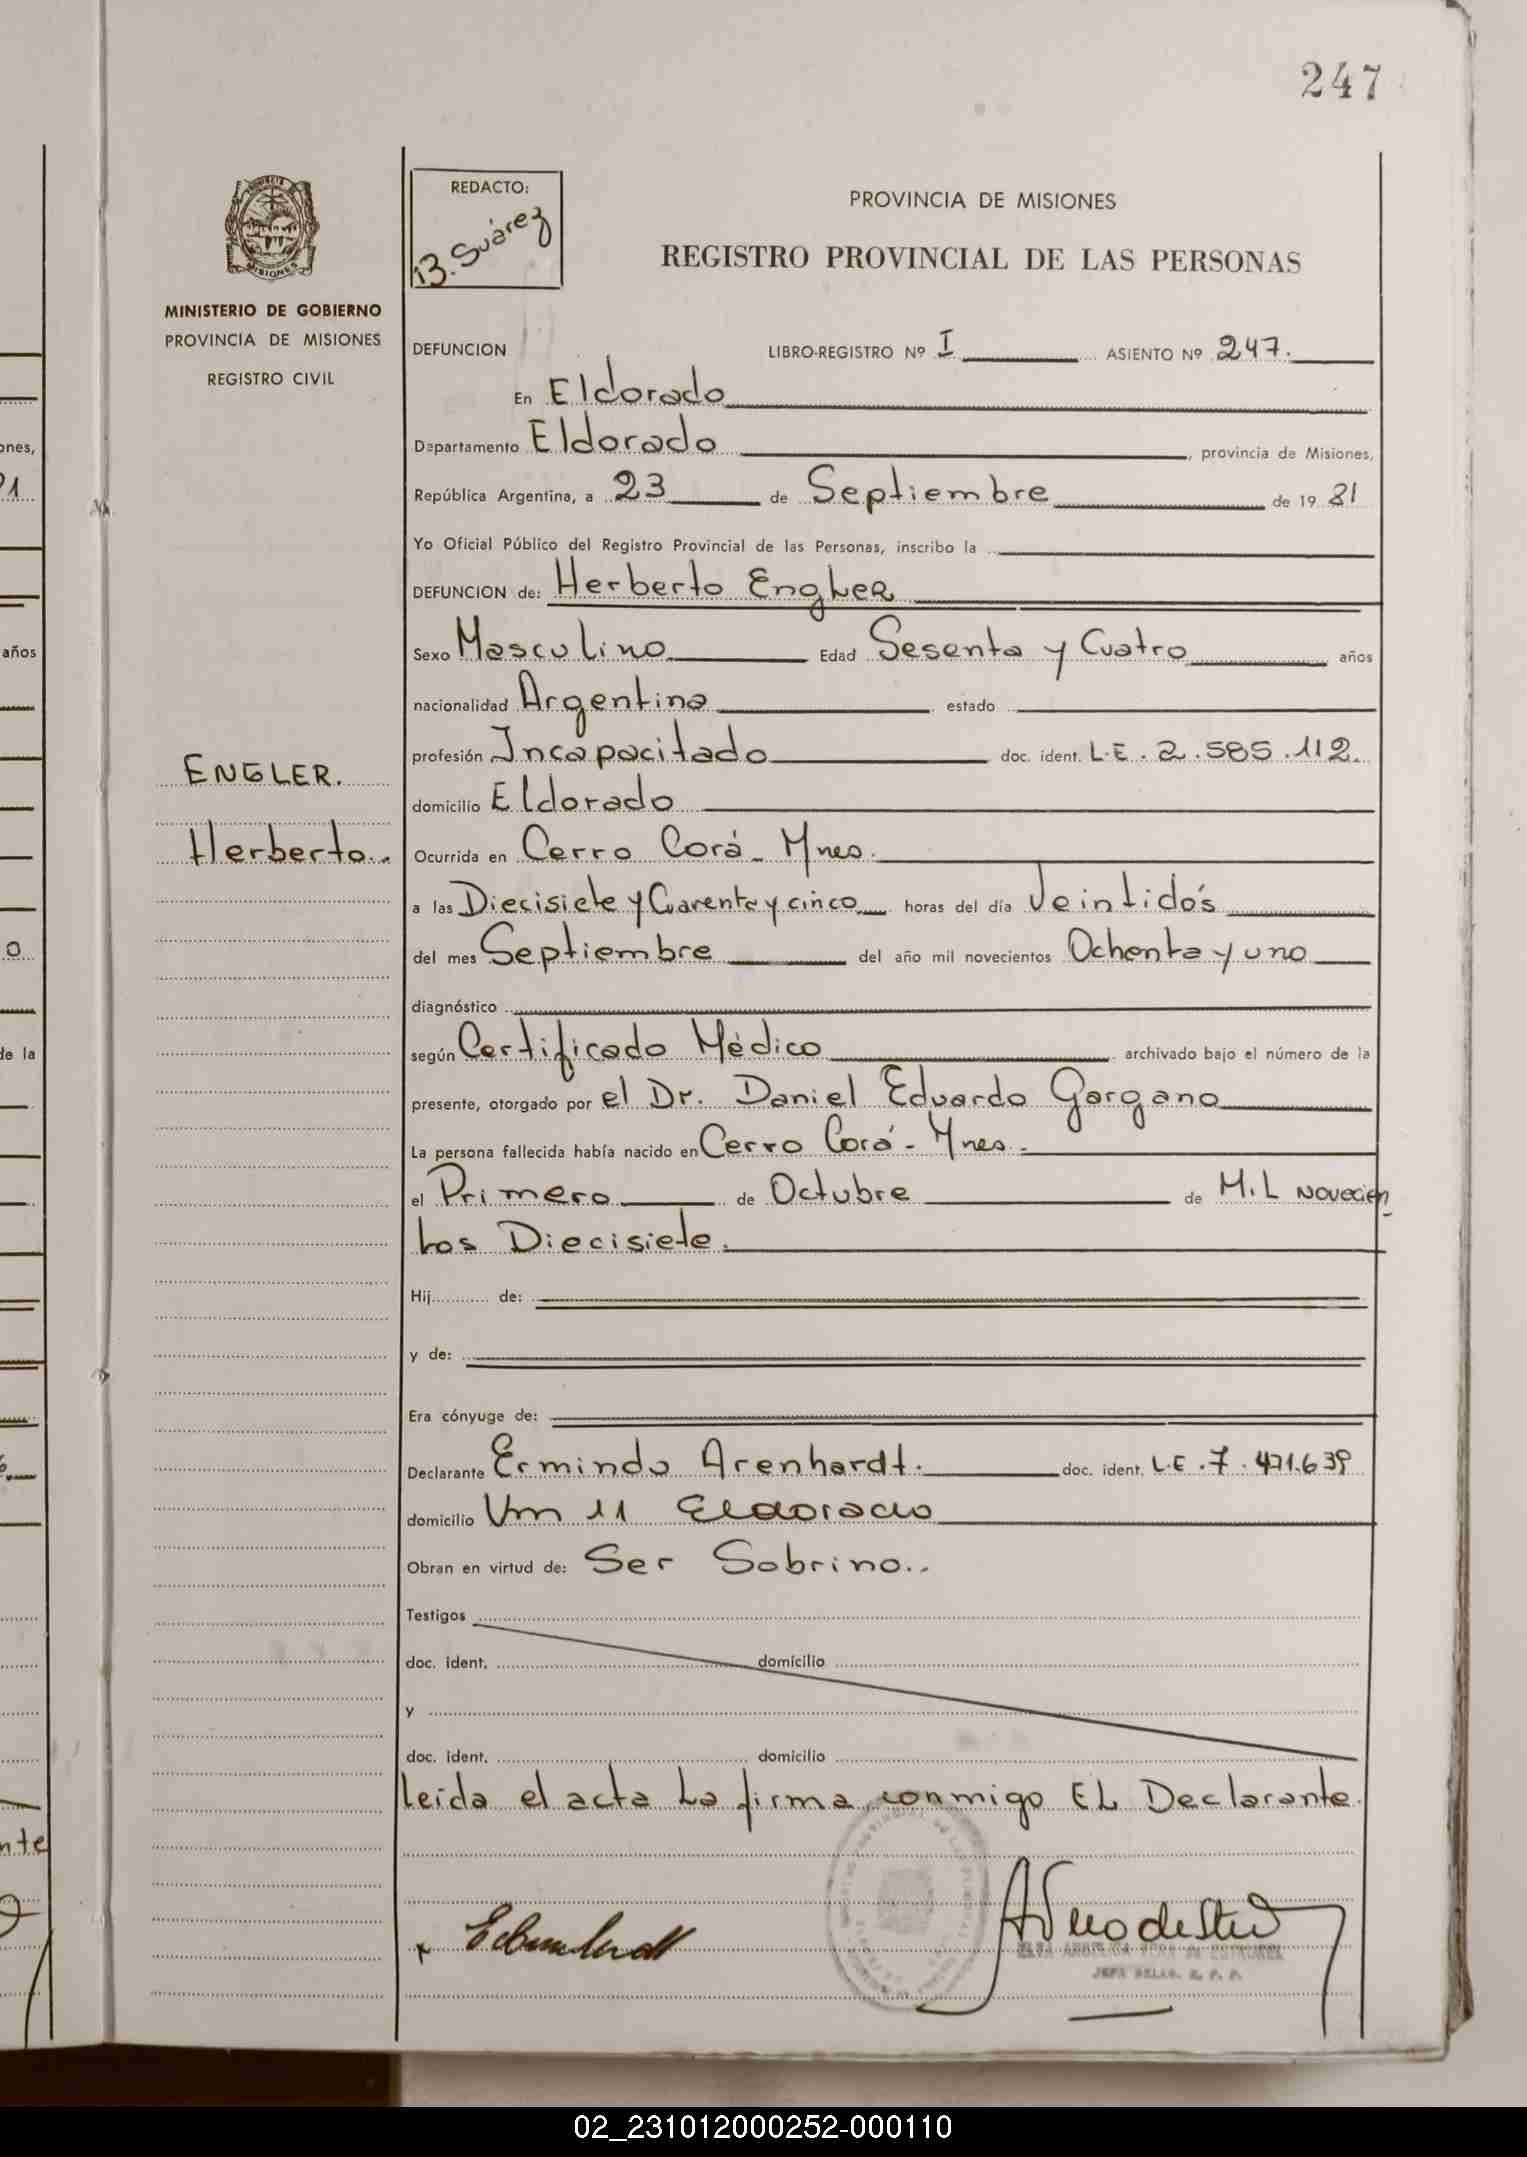 247
REDACTO:
B. Suárez
PROVINCIA DE MISIONES
REGISTRO PROVINCIAL DE LAS PERSONAS
MINISTERIO DE GOBIERNO
PROVINCIA DE MISIONES
REGISTRO CIVIL
ENGLER.
Herberto.
DEFUNCION LIBRO-REGISTRO Nº I ASIENTO Nº 247.
En Eldorado
Departamento Eldorado, provincia de Misiones,
República Argentina, a 23 de Septiembre de 19 81
Yo Oficial Público del Registro Provincial de las Personas, inscribo la
DEFUNCION de: Herberto Engler
Sexo Masculino Edad Sesenta y Cuatro años
nacionalidad Argentina estado
profesión Incapacitado doc. ident. L.E. 2.585.112.
domicilio Eldorado
Ocurrida en Cerro Corá - Mnes.
a las Diecisiete y Cuarenta y cinco horas del día Veintidós
del mes Septiembre del año mil novecientos Ochenta y uno
diagnóstico
según Certificado Médico archivado bajo el número de la
presente, otorgado por el Dr. Daniel Eduardo Gargano
La persona fallecida había nacido en Cerro Corá - Mnes.
el Primero de Octubre de Mil novecien
tos Diecisiete.
Hij de:
y de:
Era cónyuge de:
Declarante Ermindo Arenhardt. doc. ident. L.E. 7.471.639
domicilio Km 11 Eldorado
Obran en virtud de: Ser Sobrino..
Testigos
doc. ident. domicilio
y
doc. ident. domicilio
Leida el acta La firma conmigo EL Declarante.
ones,
años
de la
nte
02_231012000252-000110